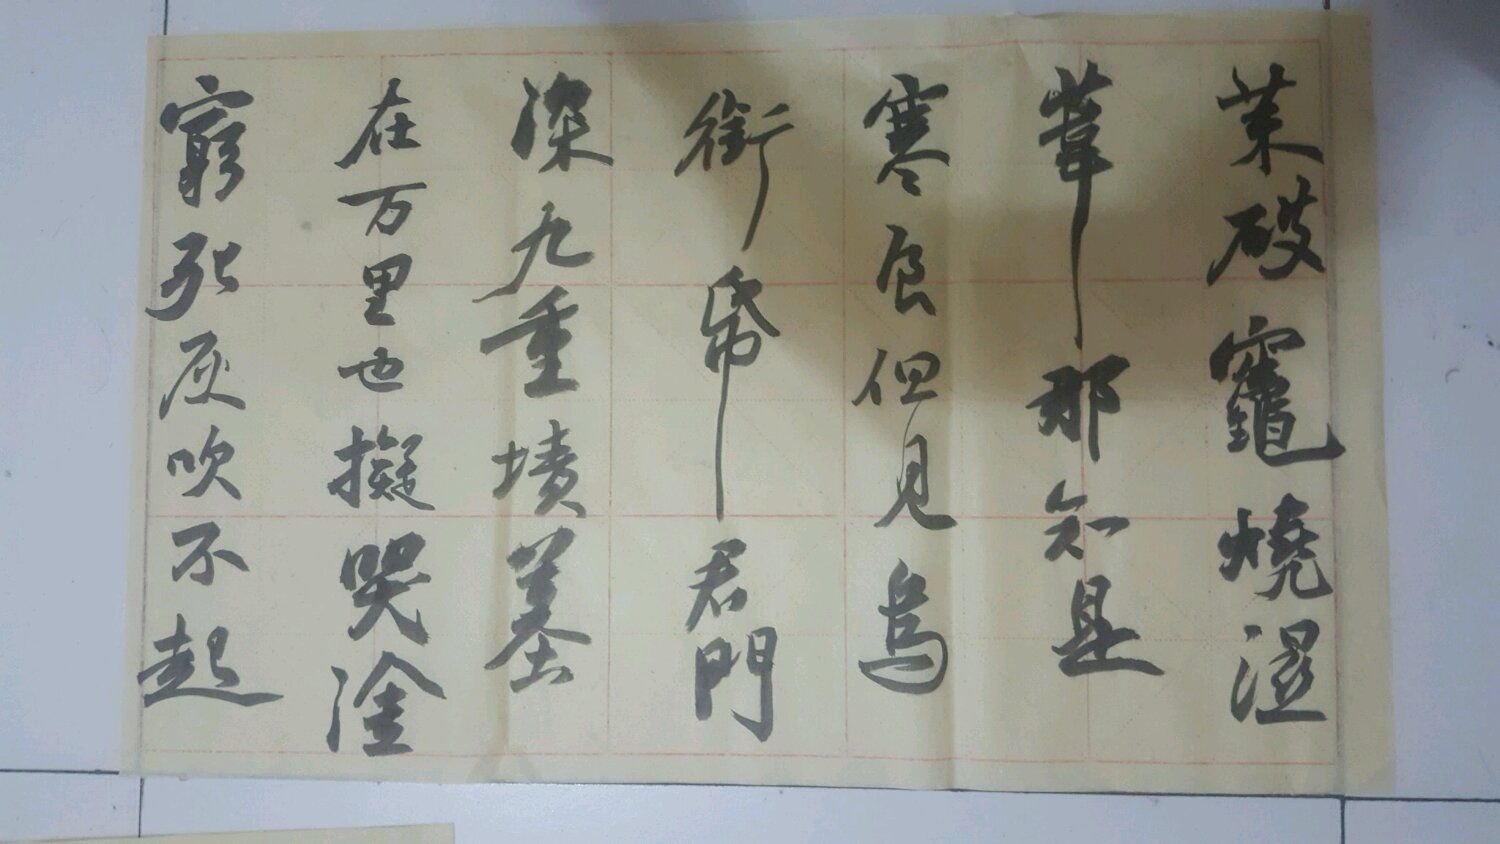 菜破竈燒湿
葦那知是
寒食但見烏
銜帋君門
深九重墳墓
在万里也擬哭塗
窮死灰吹不起